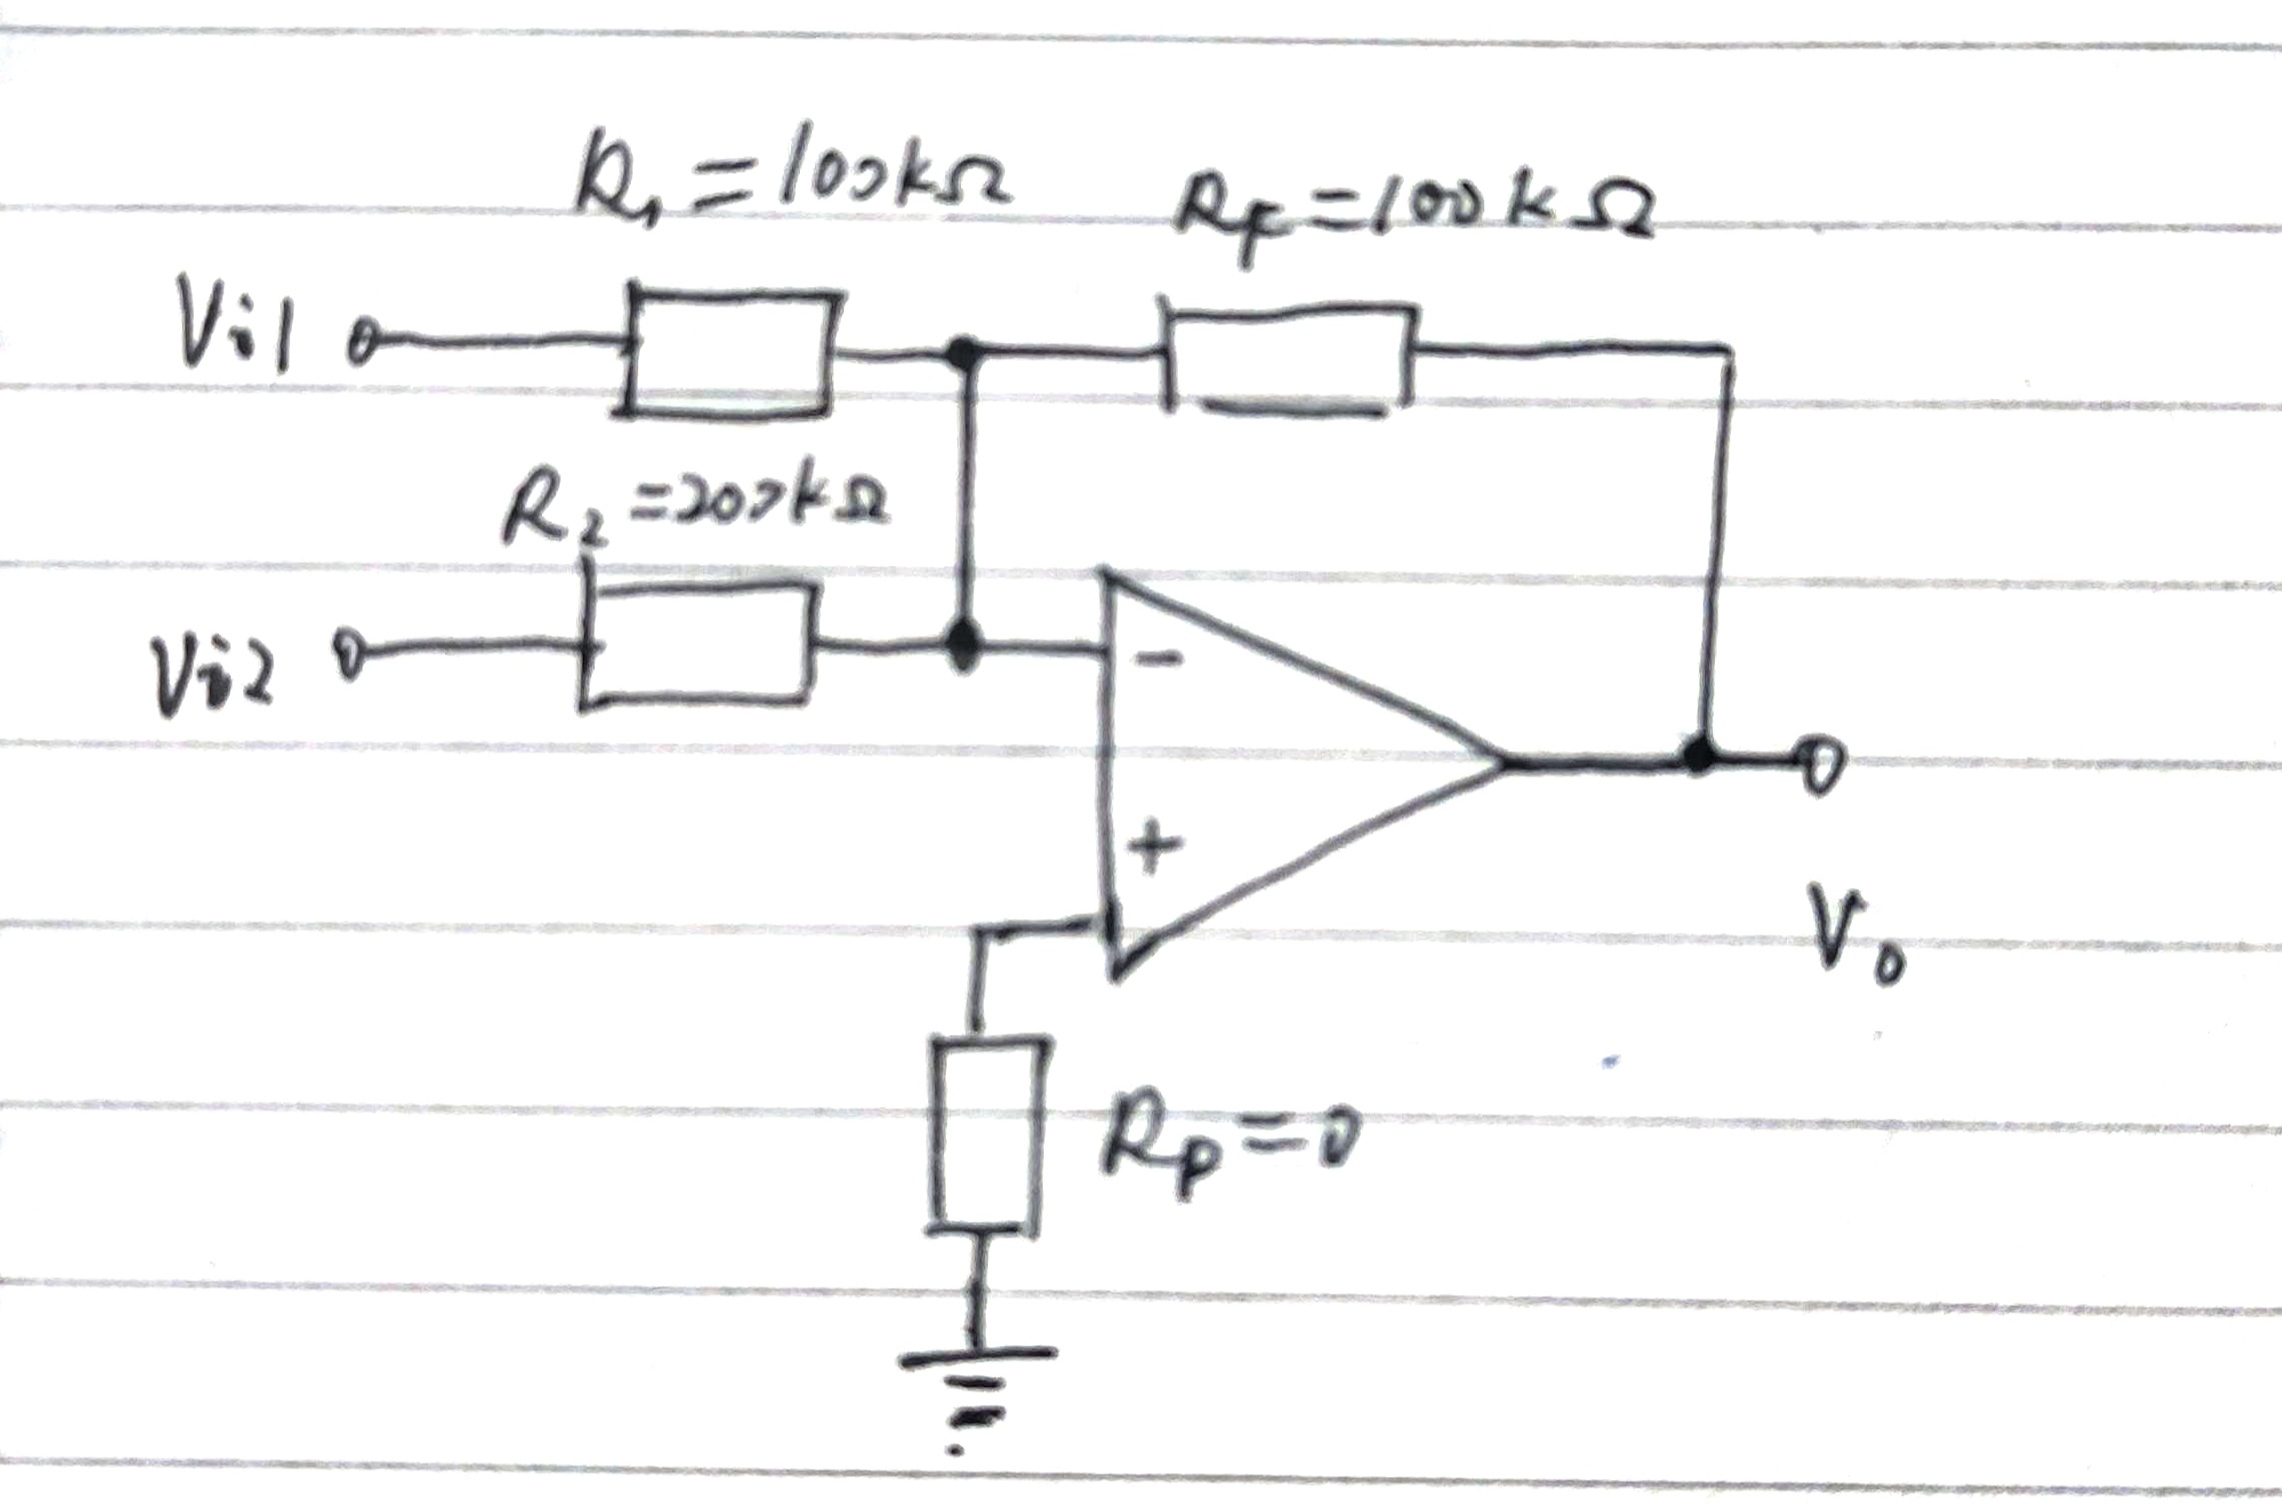 R₁ = 100kΩ
R_F = 100kΩ
Vi1
R₂ = 200kΩ
Vi2
−
+
V₀
R_P = 0